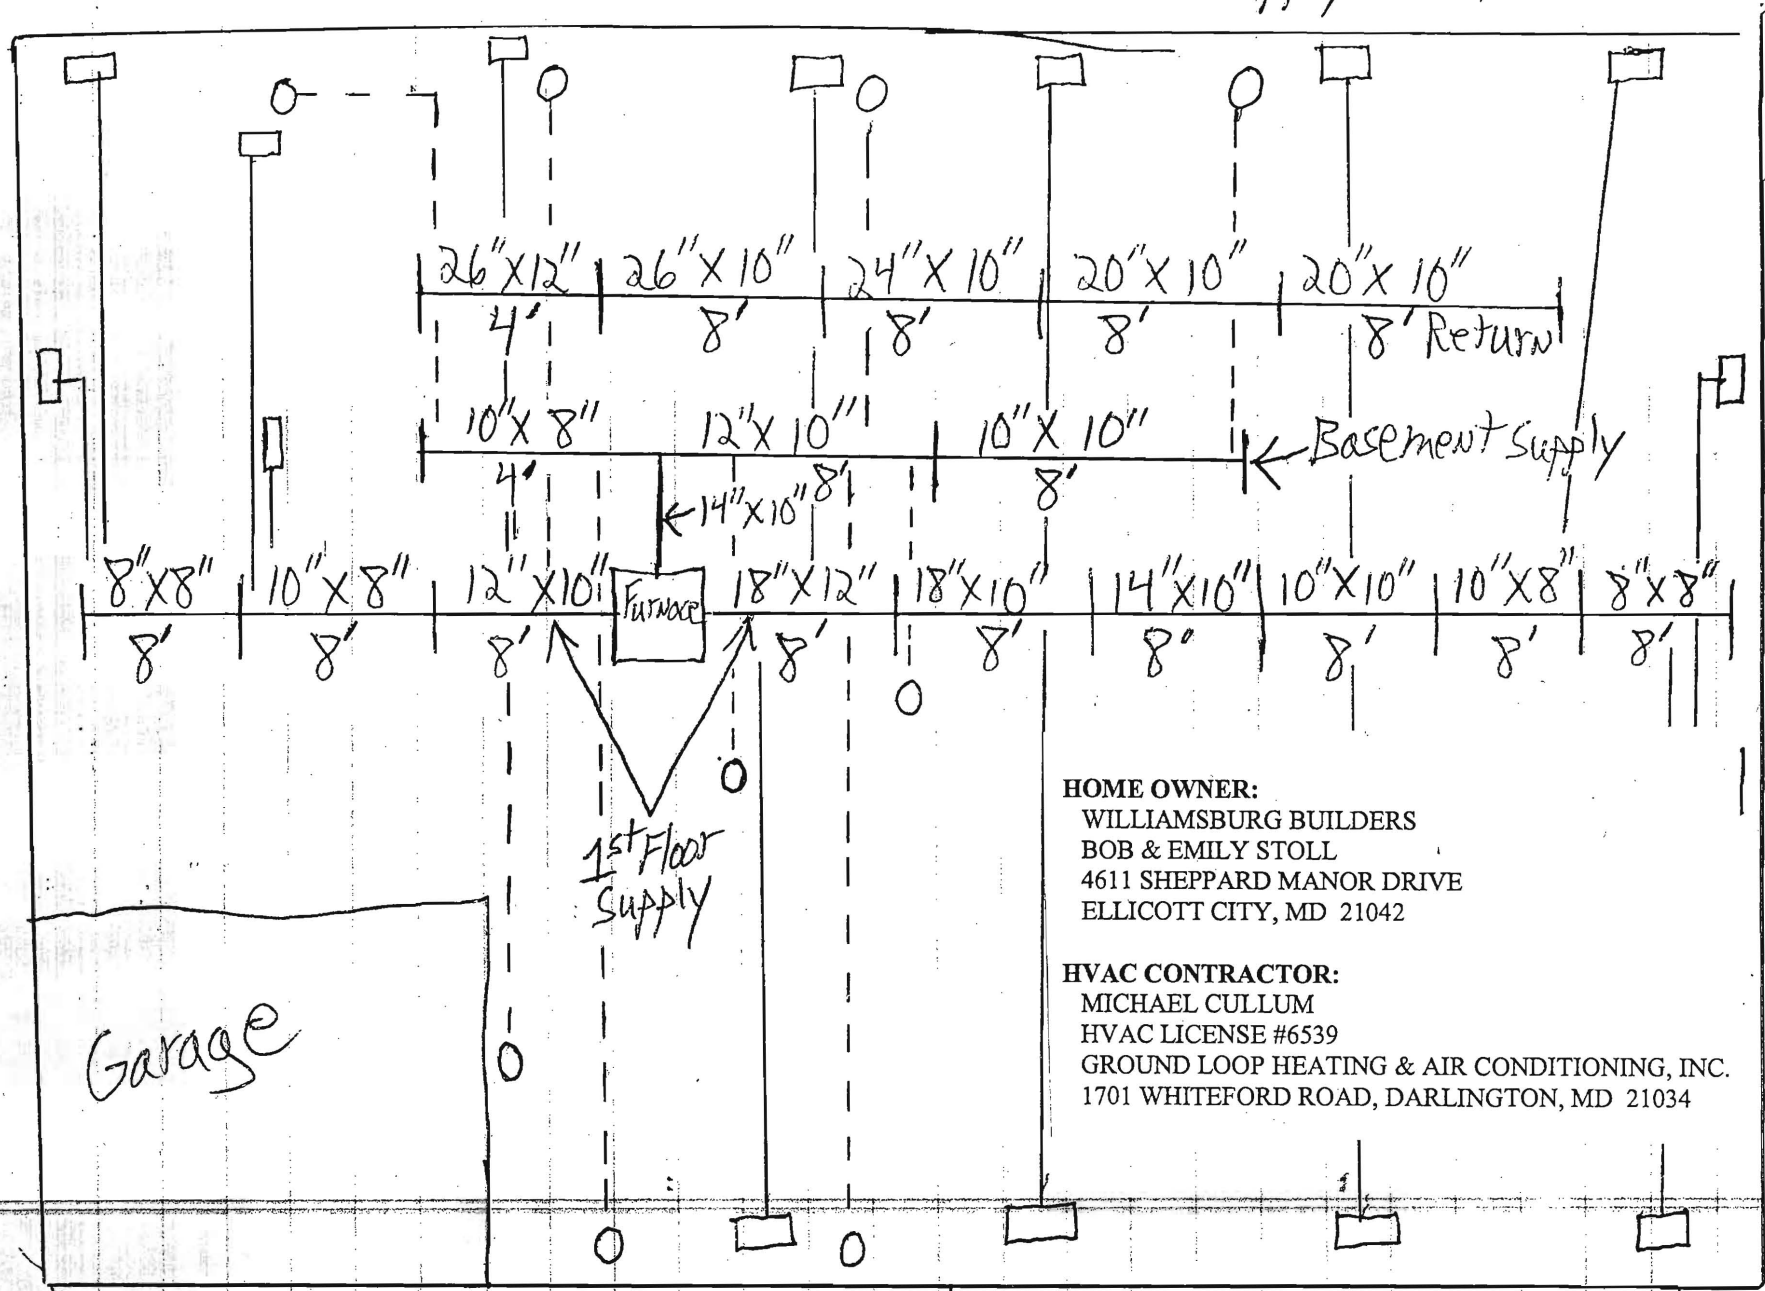 26"X12" 26"X10" 24"X10" 20"X10" 20"X10"
4' 8' 8' 8' 8' Return
10"X8" 12"X10" 10"X10" Basement Supply
4' 8' 8'
14"X10"
8"X8" 10"X8" 12"X10" Furnace 18"X12" 18"X10" 14"X10" 10"X10" 10"X8" 8"X8"
8' 8' 8' 8' 8' 8" 8' 8' 8'
1st Floor
Supply
HOME OWNER:
WILLIAMSBURG BUILDERS
BOB & EMILY STOLL
4611 SHEPPARD MANOR DRIVE
ELLICOTT CITY, MD 21042
HVAC CONTRACTOR:
MICHAEL CULLUM
HVAC LICENSE #6539
GROUND LOOP HEATING & AIR CONDITIONING, INC.
1701 WHITEFORD ROAD, DARLINGTON, MD 21034
Garage